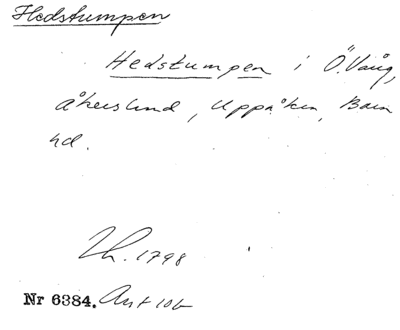 Hedstumpen
Hedstumpen i Ö. Vång,
Åkerslund, Uppåkra, Bara
hd.
Th. 1798
Nr 6384. Ant 10b